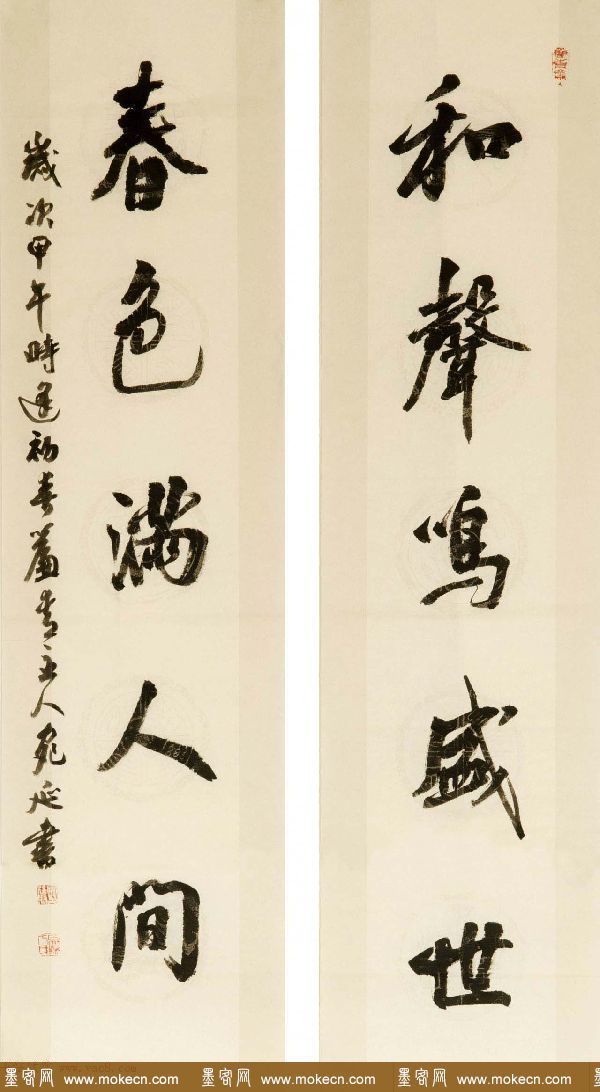 和聲鳴盛世
春色滿人間
歲次甲午時逢初春
主人
延書
墨客网 www.mokecn.com 墨客网 www.mokecn.com 墨客网 www.mokecn.com 墨客网